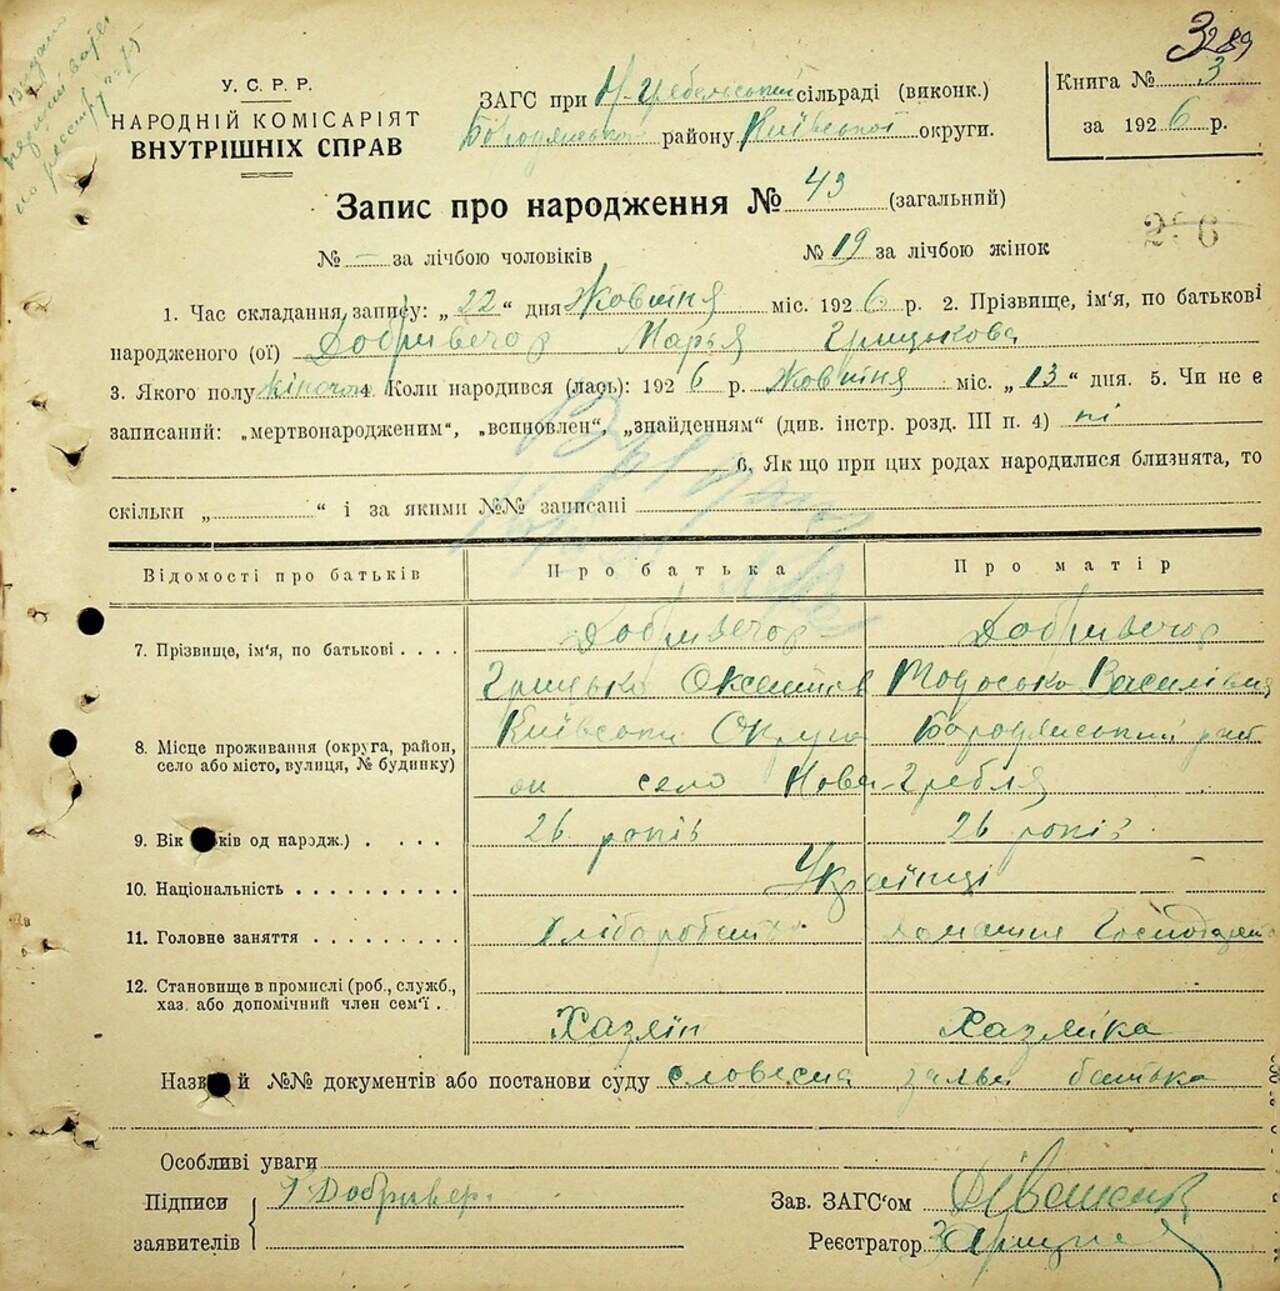 3289
У. С. Р. Р.
НАРОДНІЙ КОМІСАРІЯТ
ВНУТРІШНІХ СПРАВ
ЗАГС при Н-Гребельський сільраді (виконк.)
Бородянського району Київської округи.
Книга № 3
за 1926 р.
Запис про народження № 43 (загальний)
№ — за лічбою чоловіків № 19 за лічбою жінок
1. Час складання запису: „22“ дня Жовтня міс. 1926 р. 2. Прізвище, ім'я, по батькові
народженого (ої) Добривечор Марья Грицькова
3. Якого полу жіночої 4. Коли народився (лась): 1926 р. Жовтня міс. „13“ дня. 5. Чи не є
записаний: „мертвонародженим“, „вспновлен“, „знайденням“ (див. інстр. розд. III п. 4) ні
6. Як що при цих родах народилися близнята, то
скільки „ “ і за якими №№ записані
Відомості про батьків Про батька Про матір
7. Прізвище, ім'я, по батькові . . . . Добривечор Добривечор
Грицько Оксентов Тодоська Василівна
8. Місце проживання (округа, район, село або місто, вулиця, № будинку) Київська Округа Бородянський рай
он село Нова-Гребля
9. Вік ків од народж.) . . . . 26 років 26 років
10. Національність . . . . . . . . . . Українці
11. Головне заняття . . . . . . . . . Хліборобство домашня Господарство
12. Становище в промислі (роб., служб.,
хаз. або допомічний член сем'ї . Хазяїн Хазяйка
Назв й №№ документів або постанови суду словесна заява батька
Особливі уваги
Підписи заявителів Г Добривер.
Зав. ЗАГС'ом
Реєстратор